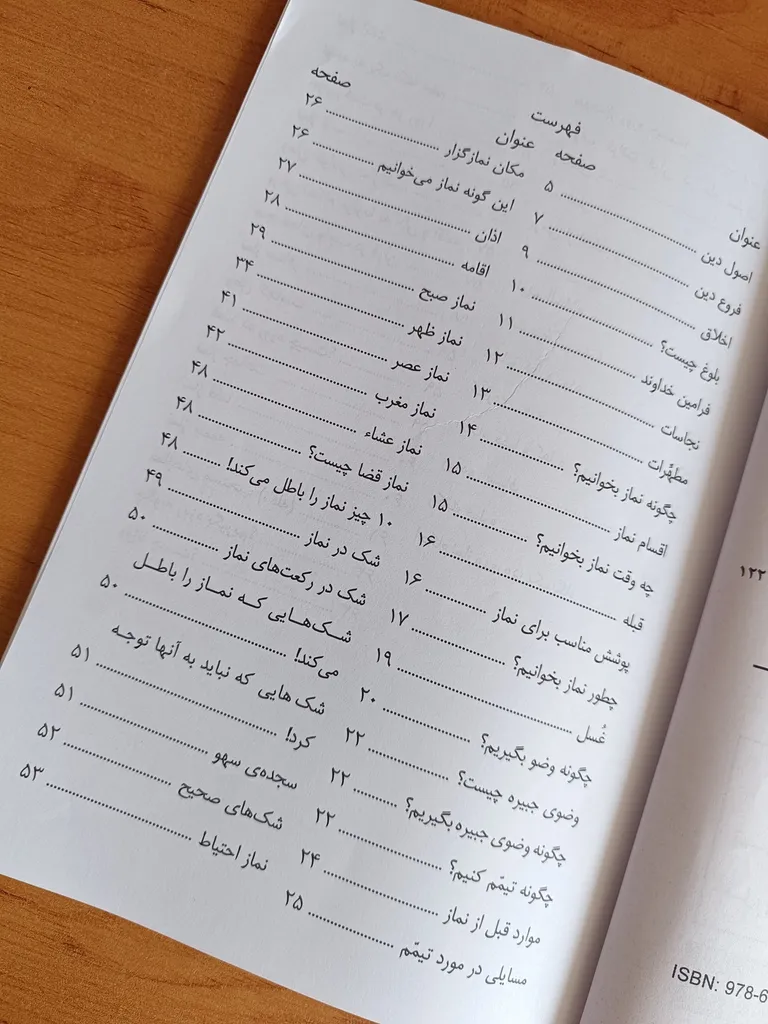 فهرست
عنوان صفحه
اصول دین ۵
فروع دین ۷
اخلاق ۹
بلوغ چیست؟ ۱۰
فرامین خداوند ۱۱
نجاسات ۱۲
مطهّرات ۱۳
چگونه نماز بخوانیم؟ ۱۴
اقسام نماز ۱۵
چه وقت نماز بخوانیم؟ ۱۵
قبله ۱۶
پوشش مناسب برای نماز ۱۶
چطور نماز بخوانیم؟ ۱۷
غُسل ۱۹
چگونه وضو بگیریم؟ ۲۰
وضوی جبیره چیست؟ ۲۲
چگونه وضوی جبیره بگیریم؟ ۲۲
چگونه تیمّم کنیم؟ ۲۲
موارد قبل از نماز ۲۴
مسایلی در مورد تیمّم ۲۵
عنوان صفحه
مکان نمازگزار ۲۶
این گونه نماز می‌خوانیم ۲۶
اذان ۲۷
اقامه ۲۸
نماز صبح ۲۹
نماز ظهر ۳۴
نماز عصر ۴۱
نماز مغرب ۴۲
نماز عشاء ۴۸
نماز قضا چیست؟ ۴۸
۱۰ چیز نماز را باطل می‌کند! ۴۸
شک در نماز ۴۹
شک در رکعت‌های نماز ۵۰
شک‌هایی که نماز را باطل
می‌کند! ۵۰
شک هایی که نباید به آنها توجه
کرد! ۵۱
سجده‌ی سهو ۵۱
شک‌های صحیح ۵۲
نماز احتیاط ۵۳
۱۲۲
ISBN: 978-6